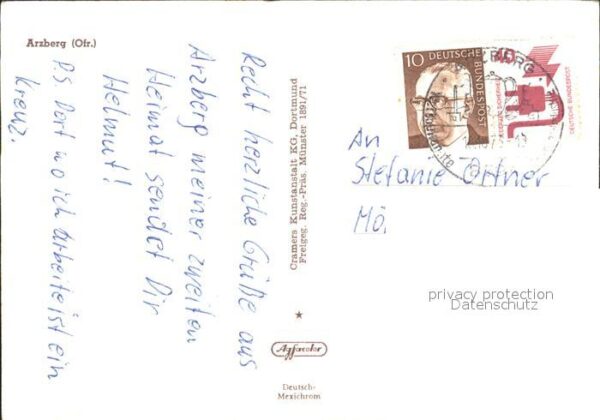 Arzberg (Ofr.)
Recht herzliche Grüße aus
Arzberg meiner zweiten
Heimat sendet Dir
Helmut!
P.S. Dort wo ich arbeite ist ein
Kreuz.
Cramers Kunstanstalt KG, Dortmund
Freigeg. Reg.-Präs. Münster 1891/71
Agfacolor
Deutsch-
Mexichrom
10 DEUTSCHE BUNDESPOST
40
DEUTSCHE BUNDESPOST
An
Stefanie Ortner
Mö.
privacy protection
Datenschutz